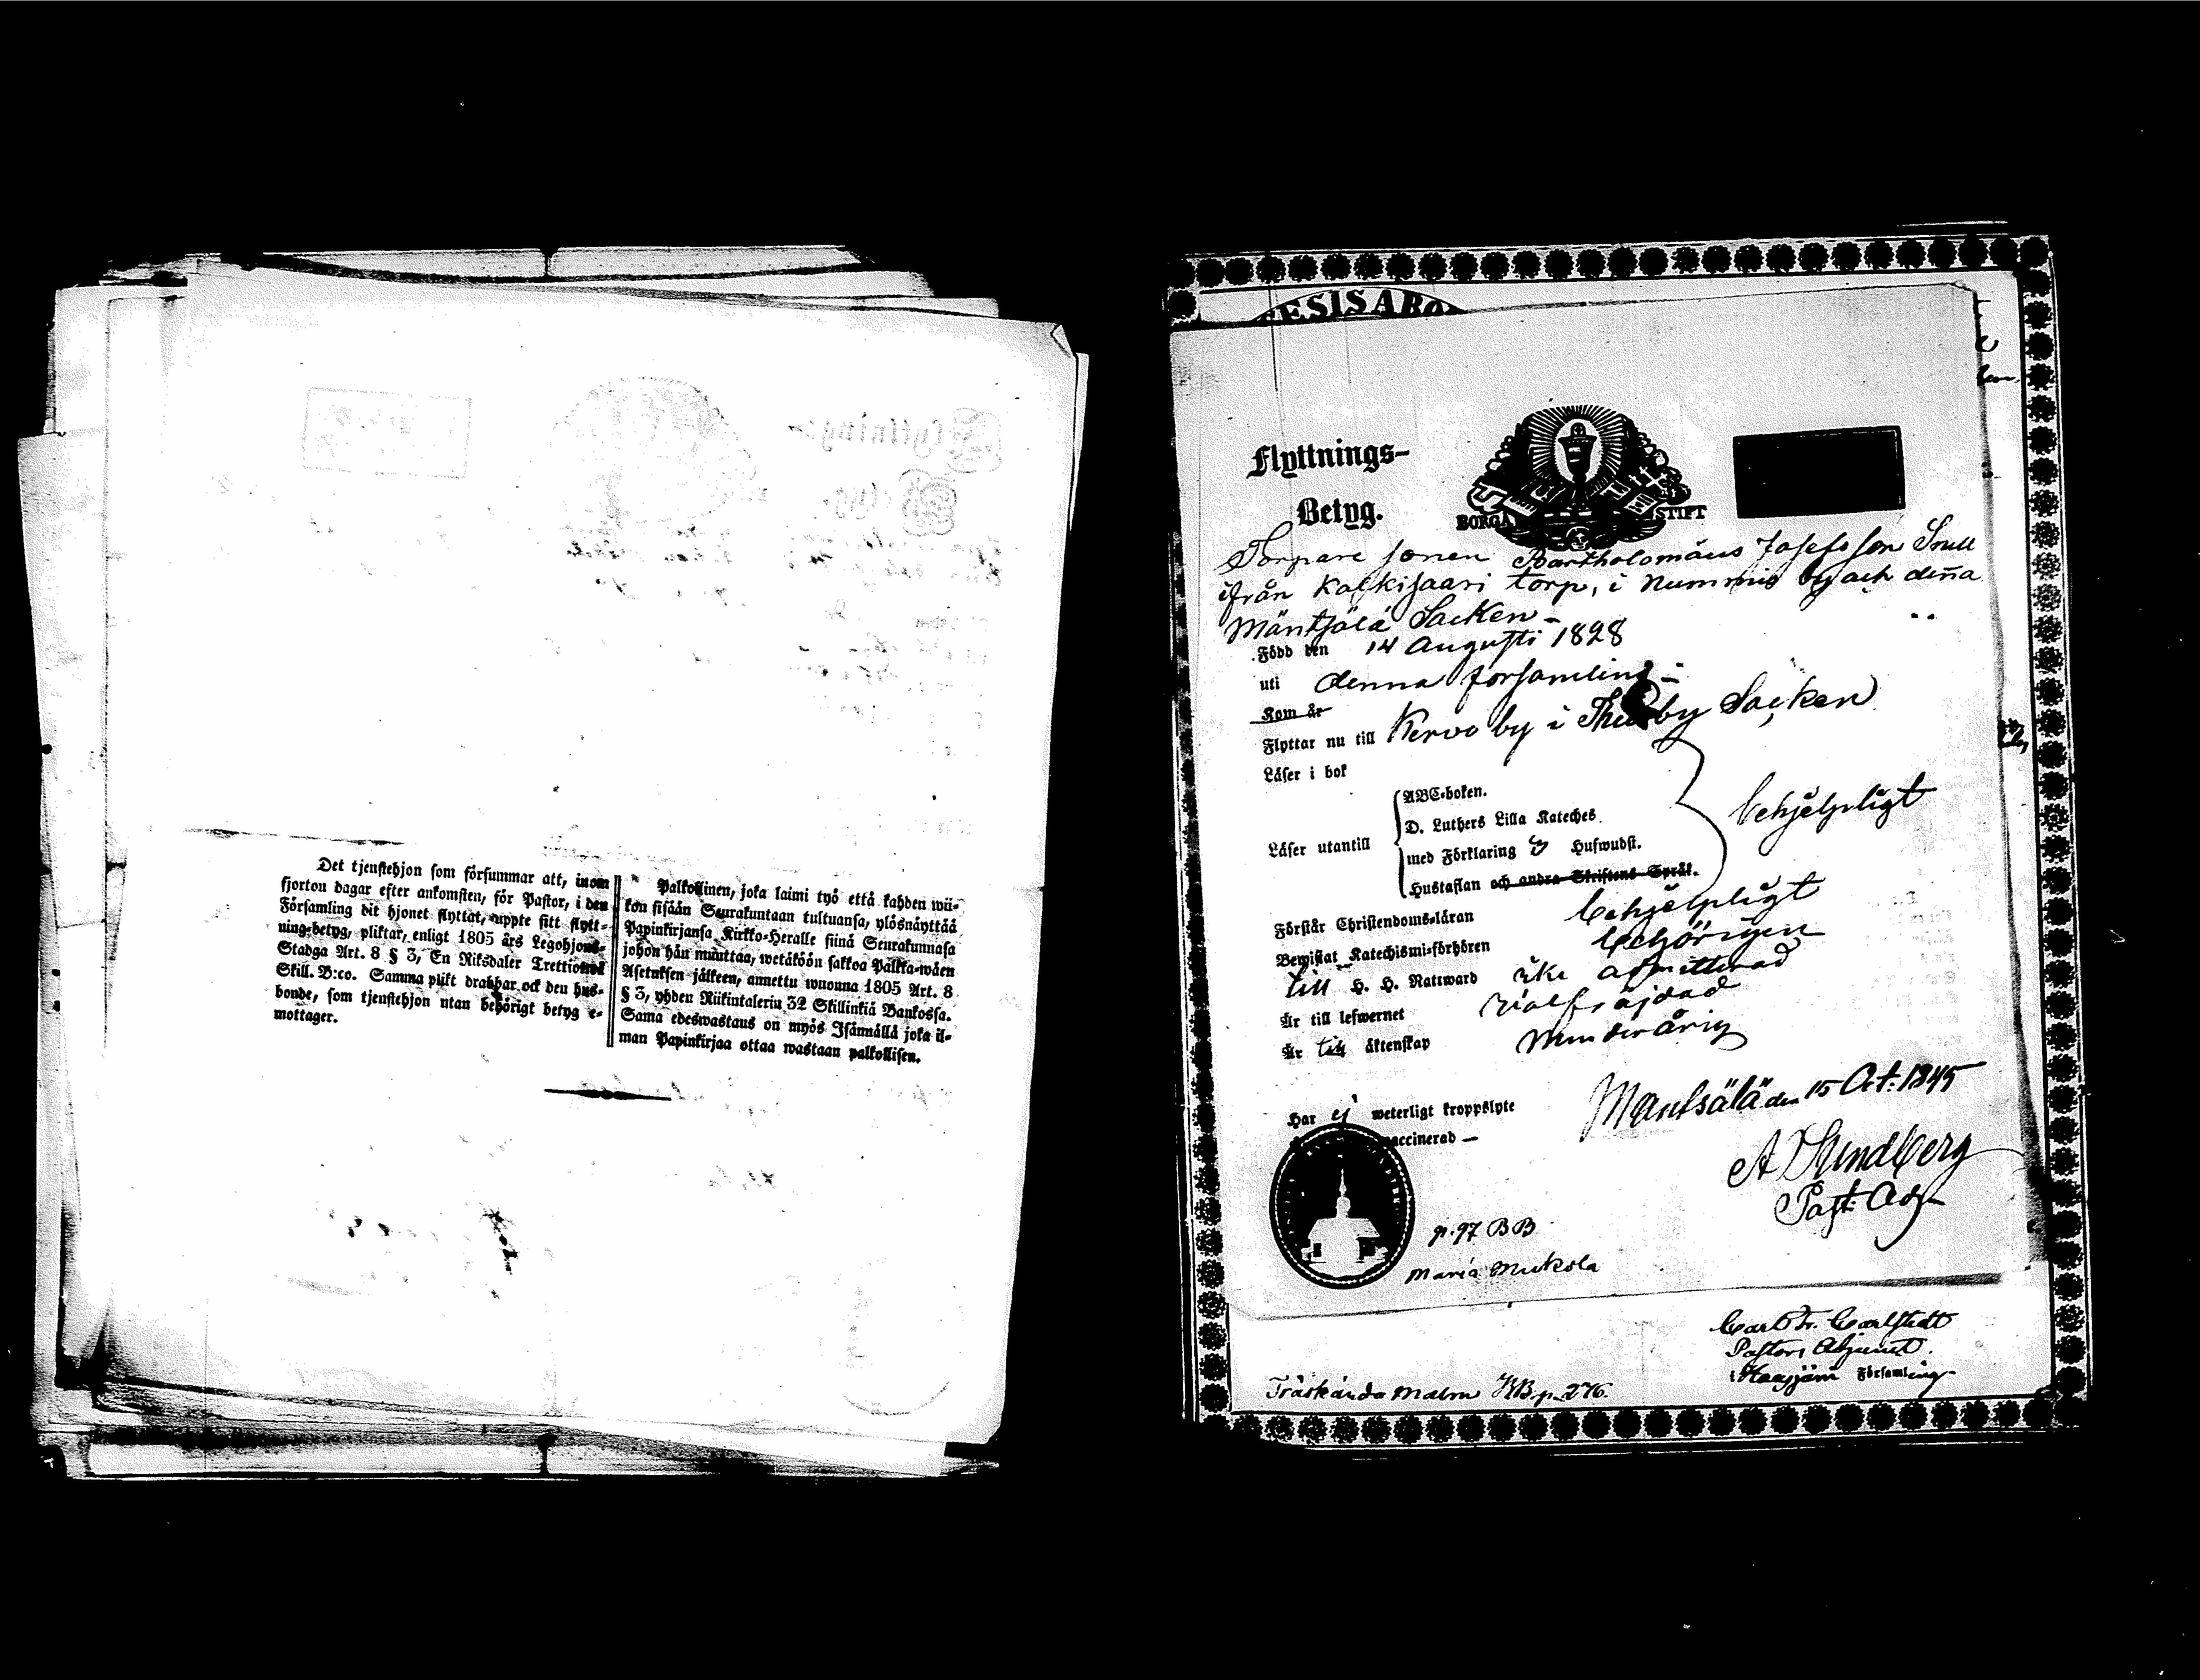 Det tjenstehjon som försummar att, inom
fjorton dagar efter ankomsten, för Pastor, i den
Församling dit hjonet flyttat, uppte sitt flytt-
ning-betyg, pliktar, enligt 1805 års Legohjons-
Stadga Art. 8 § 3, En Riksdaler Trettiotvå
Skill. B:co. Samma plikt drabbar ock den hus-
bonde, som tjenstehjon utan behörigt betyg e-
mottager.
Palkollinen, joka laimi työ että kahden wii-
kon sisään Seurakuntaan tultuansa, ylösnäyttää
Papinkirjansa Kirkko-Heralle siinä Seurakunnasa
johon hän muuttaa, wetäköön sakkoa Palkka-wäen
Asetuksen jälkeen, annettu wuonna 1805 Art. 8
§ 3, yhden Riikintalerin 32 Skillinkiä Bankossa.
Sama edeswastaus on myös Isännällä joka il-
man Papinkirjaa ottaa wastaan palkollisen.
Flyttnings-
Betyg.
BORGÅ STIFT
Torpare sonen Bartholomäus Josefsson Snell
ifrån Kalkisaari torp, i Nummis by och denna
Mäntsälä Socken
Född den 14 Augusti 1828
uti denna församling
Kom år
Flyttar nu till Kervo by i Thusby Socken
Läser i bok
ABC-boken.
D. Luthers Lilla Kateches
Läser utantill
med Förklaring Hufwudst.
Hustaflan och andra Skriftens Språk.
behjelpligt
Förstår Christendoms-läran behjelpligt
Bewistat Katechismi-förhören behörigen
till H. H. Nattward icke admitterad
Är till lefwernet välfräjdad
Är till äktenskap minderårig
Har ej weterligt kroppslyte
vaccinerad —
Mäntsälä den 15 Oct. 1845
A Sundberg
Past. Adj.
p. 97 BB
Maria Mickola
Carl Fr. Carlstedt
Pastors Adjunct.
i Hausjärvi Församling
Träskända Malm KB p. 276.